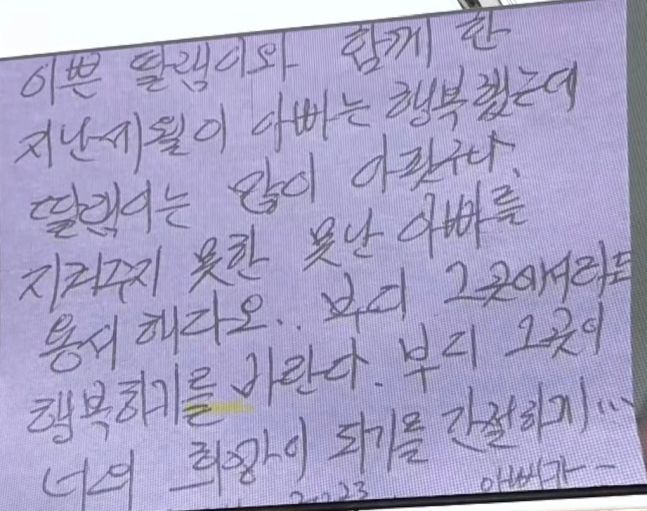 이쁜 딸램이와 함께 한
지난세월이 아빠는 행복했는데
딸램이는 많이 아팟구나.
지켜주지 못한 못난 아빠를
용서 해다오.. 부디 그곳에서라도
행복하기를 바란다. 부디 그곳이
너의 희망이 되기를 간절하게...
2023 아빠가-